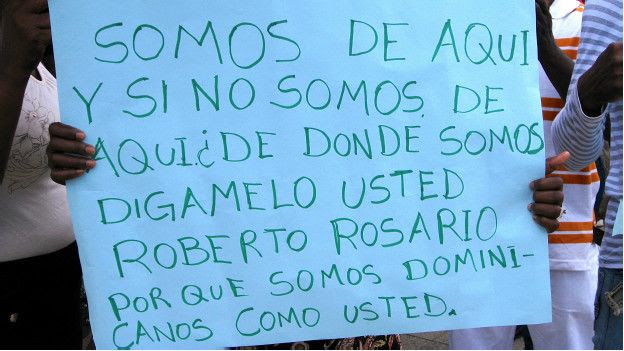 SOMOS DE AQUI
Y SI NO SOMOS DE
AQUI¿DE DONDE SOMOS
DIGAMELO USTED
ROBERTO ROSARIO
PORQUE SOMOS DOMINI-
CANOS COMO USTED.